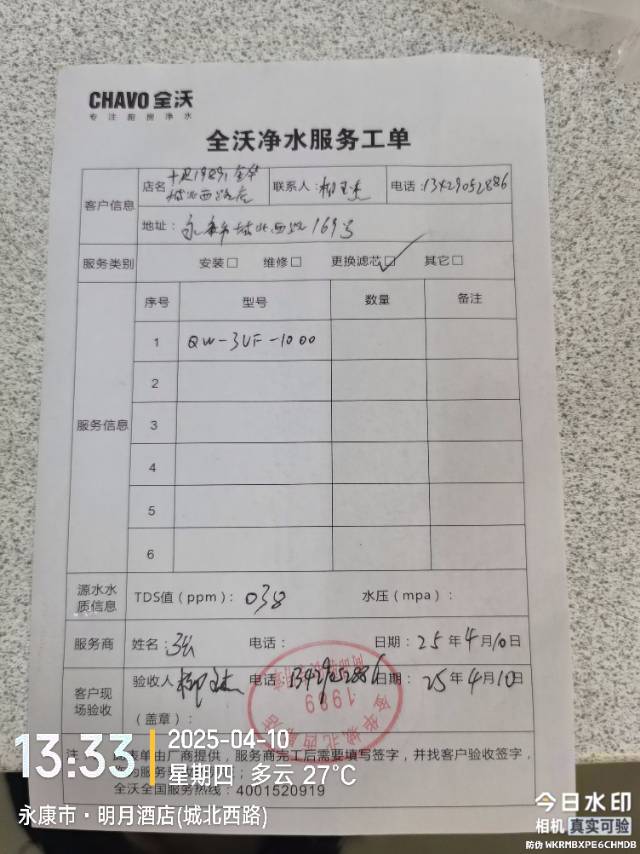 CHAVO 全沃
专注厨房净水
全沃净水服务工单
客户信息
店名 1989
城北西路店
联系人：
电话：13429052886
地址：永康市城北西路169号
服务类别 安装□ 维修□ 更换滤芯☑ 其它□
服务信息
序号 型号 数量 备注
1 QW-3UF-1000
2
3
4
5
6
源水水质信息 TDS值（ppm）：038 水压（mpa）：
服务商 姓名： 电话： 日期：25年4月10日
客户现场验收
验收人 电话 13429052886 日期：25年4月10日
（盖章）：
1989
全沃全国服务热线：4001520919
13:33
2025-04-10
星期四 多云 27℃
永康市·明月酒店(城北西路)
今日水印
相机 真实可验
防伪 WKRMBXPE6CHMDB